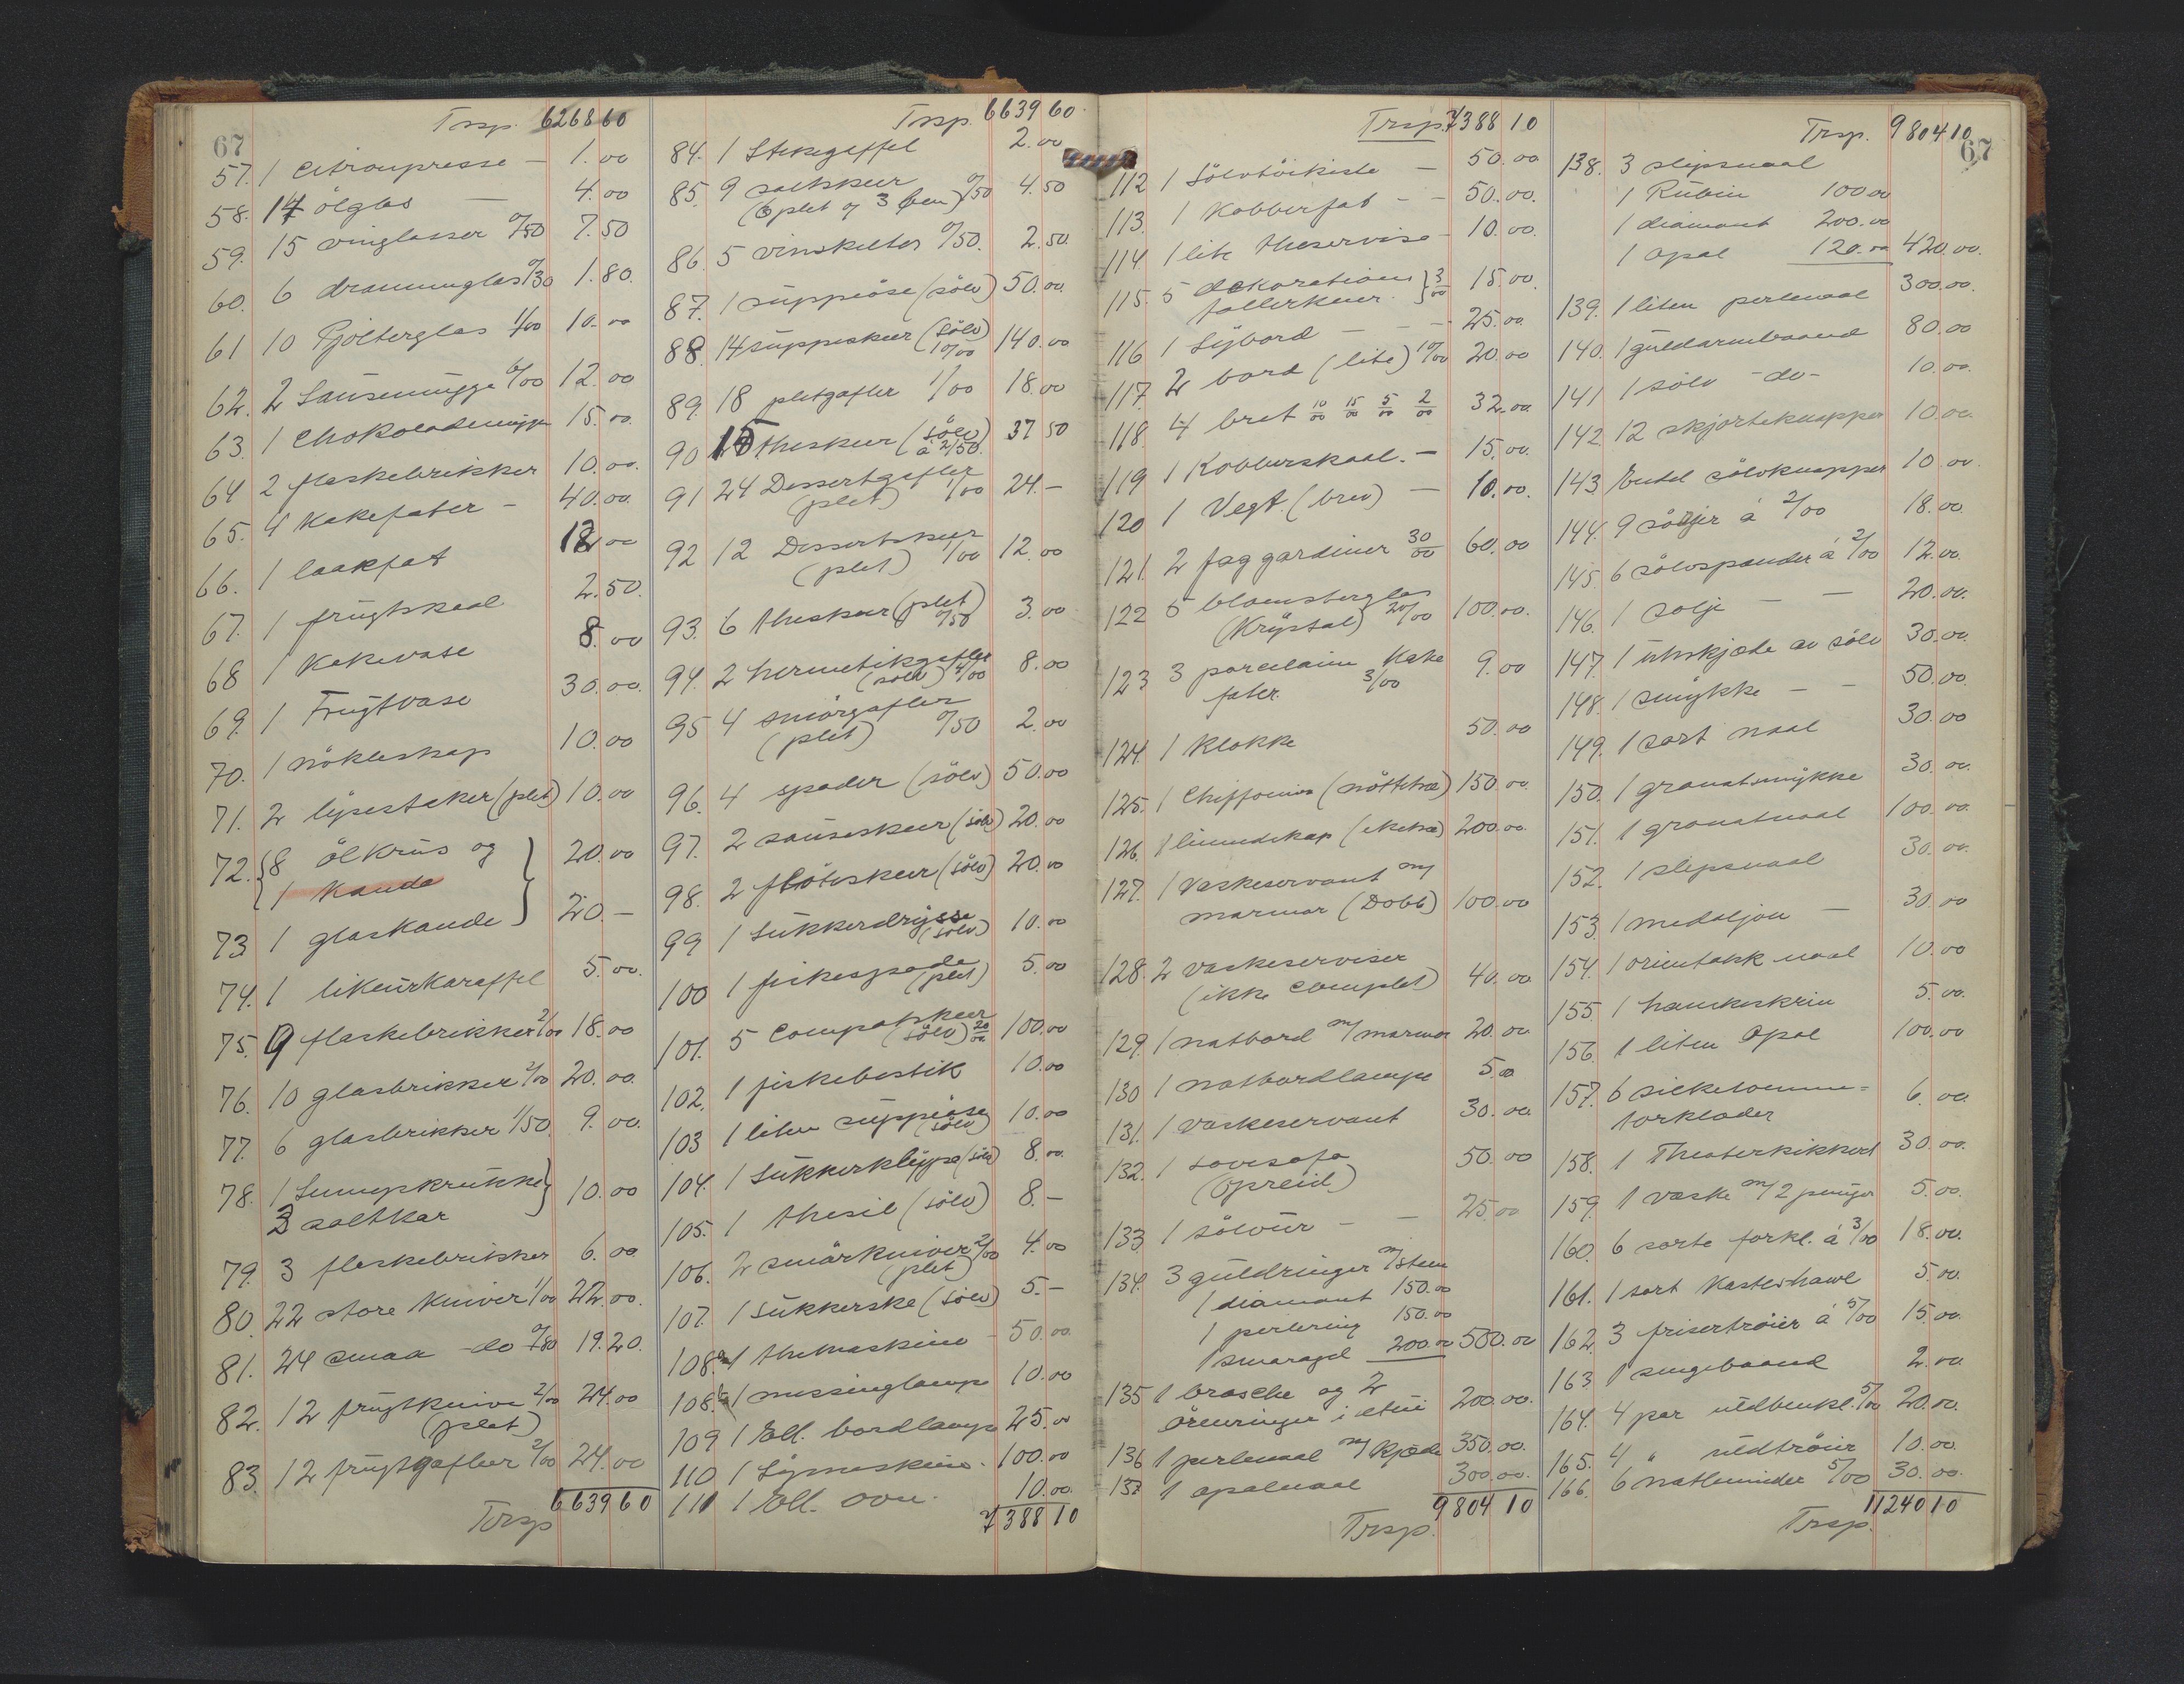 67
Trsp. 6268 60
57. 1 citronpresse — 1.00
58. 14 ölglas — 4.00
59. 15 vinglasser 0/50 7.50
60. 6 dramminglas 0/30 1.80.
61 10 Pjolterglas 1/00 10.00
62. 2 Sausemugge 6/00 12.00
63. 1 Chokolademugge 15.00.
64 2 flaskebrikker 10.00.
65. 4 Kakefater - 40.00.
66. 1 laakfat 12.00
67. 1 frugtskaal 2.50.
68 1 Kakevase 8.00
69. 1 Frugtvase 30.00.
70. 1 nökleskap 10.00
71. 2 lysestaker (plet) 10.00
72. 8 ölkrus og 20.00
1 Kande
73 1 glaskande 20.—
74. 1 likeurkaraffel 5.00.
75. 9 flaskebrikker 2/00 18.00
76. 10 glasbrikker 2/00 20.00.
77. 6 glasbrikker 1/50 9.00.
78. 1 Sennepskrukke 10.00
3 saltkar
79. 3 flaskebrikker 6.00
80. 22 store kniver 1/00 22.00.
81. 24 smaa -do 0/80 19.20.
82. 12 frugtknive 2/00 24.00
(plet)
83. 12 frugtgafler 2/00 24.00
Trsp 6639 60
Trsp. 6639 60
84. 1 Stekegaffel 2.00
85. 9 saltskeer 0/50 4.50
(6 plet og 3 ben)
86. 5 vinskilter 0/50. 2.50.
87. 1 suppeöse (sölv) 50.00.
88. 14 suppeskeer (sölv) 140.00
10/00
89. 18 pletgafler 1/00 18.00
90 15 theskeer (sölv) 37 50
á 2/50.
91 24 Dessertgafler 24.—
(plet) 1/00
92 12 Dessertskeer 12.00
(plet) 1/00
93. 6 theskeer (plet) 3.00
0/50
94. 2 hermetikgafler 8.00
(sölv) 4/00
95 4 smörgafler 2.00
(plet) 0/50
96. 4 spader (sölv) 50.00
97. 2 sauseskeer (sölv) 20.00
98. 2 flöteskeer (sölv) 20.00
99 1 Sukkerdrysse 10.00
(sölv)
100 1 fiskespade 5.00
(plet)
101. 5 Compotskeer 100.00
(sölv) 20/00
102. 1 fiskebestik 10.00
103 1 liten suppeöse 10.00
(sölv)
104. 1 Sukkerklype (sölv) 8.00.
105. 1 thesil (sölv) 8.—
106. 2 smörkniver 2/00 4.00
(plet)
107. 1 Sukkerske (sölv) 5.—
108.a 1 themaskine - 50.00.
108.b 1 messinglampe 10.00
109 1 Ell. bordlampe 25.00
110 1 Symaskine. 100.00
111 1 Ell. ovn. 10.00.
7388 10
Trsp. 7388 10
112 1 Sölvtöikiste — 50.00
113. 1 Kobberfat - - 50.00.
114 1 lite theservise - 10.00.
115. 5 dekorations 3/00 15.00.
tallerkener.
116 1 Sybord — — — 25.00.
117. 2 bord (lite) 10/00 20.00
118. 4 bret 10/00 15/00 5/00 2/00 32.00.
119 1 Kobberskaal. — 15.00.
120 1 Vegt. (brev) — 10.00.
121. 2 fag gardiner 30/00 60.00
122 5 blomsterglas 100.00.
(Krystal) 20/00
123 3 porcelain Kake 9.00
fater. 3/00
124. 1 Klokke 50.00
125. 1 Chiffonier (nöttetræ) 150.00.
126. 1 linnedskap (eketræ) 200.00.
127. 1 Vaskeservant m/
marmor (Dobb) 100.00
128. 2 vaskeserviser
(ikke complet) 40.00
129. 1 natbord m/marmor 20.00
130 1 natbordlampe 5.00
131. 1 vaskeservant 30.00
132. 1 sovesofa 50.00
(opreid)
133 1 sölvur — — 25.00
134. 3 guldringer m/sten
1 diamant 150.00
1 perlering 150.00
1 smaragd 200.00 500.00
135 1 brosche og 2
örenringer i etui 200.00.
136 1 perlenaal m/kjæde 350.00.
137 1 opalnaal 300.00.
Trsp. 9804 10
Trsp. 9804 10
67
138. 3 slipsnaal
1 Rubin 100.00
1 diamant 200.00
1 opal 120.00 420.00.
139. 1 liten perlenaal 300.00.
140. 1 guldarmbaand 80.00
141 1 sölv -do- 10.00.
142. 12 skjorteknapper 10.00.
143 1 butel sölvknapper 10.00.
144. 9 söljer á 2/00 18.00.
145. 6 sölvspænder á 2/00 12.00.
146. 1 sölje — — 20.00.
147. 1 urkjæde av sölv 30.00.
148. 1 smykke — — 50.00.
149. 1 sort naal 30.00
150. 1 granatsmykke 30.00.
151. 1 granatnaal 100.00.
152. 1 slipsnaal 30.00.
153. 1 medaljon — 30.00
154. 1 orientalsk naal 10.00
155. 1 hanskeskrin 5.00.
156. 1 liten Opal 100.00
157. 6 silkelomme=
törklæder 6.00
158. 1 Theaterkikkert 30.00.
159. 1 væske m/2 punger 5.00.
160. 6 sorte forkl. á 3/00 18.00.
161. 1 sort Kasteshawl 5.00.
162. 3 frisertröier á 5/00 15.00.
163. 1 sengebaand 2.00
164. 4 par uldbenkl. 5/00 20.00.
165. 4 " uldtröier 10.00.
166. 6 natlinnider 5/00 30.00.
Trsp. 11240 10